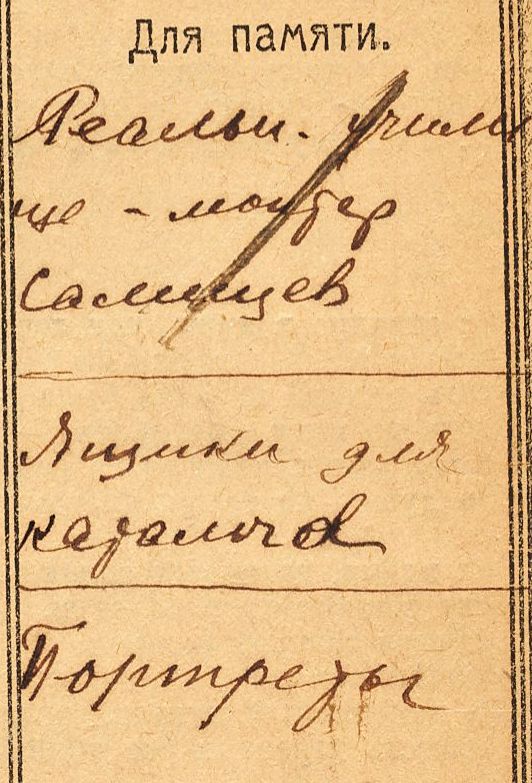 Для памяти.
Реальн. учили
ще - монтер
Салищев
Ящики для
каталога
Портреты